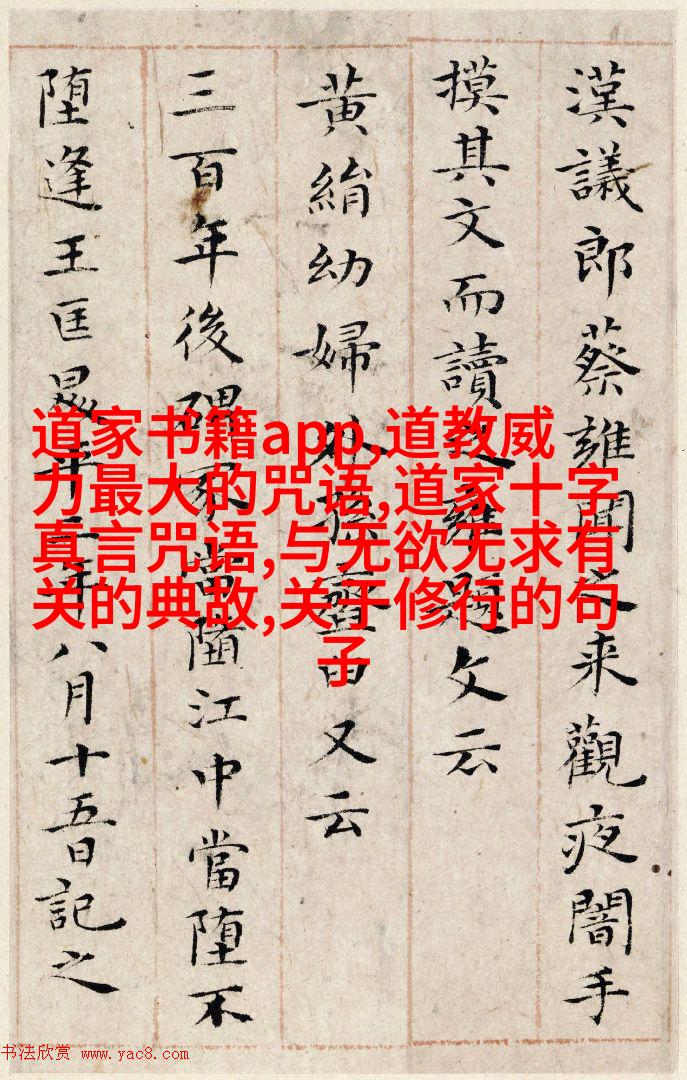 漢議郎蔡雍聞之来觀夜闇手
摸其文而讀之雍題文云
黄絹幼婦外孫韲臼又云
三百年後碑冢當堕江中當堕不
堕逢王匡昇平二年八月十五日記之
道家书籍app,道教威
力最大的咒语,道家十字
真言咒语,与无欲无求有
关的典故,关于修行的句
子
书法欣赏 www.yac8.com